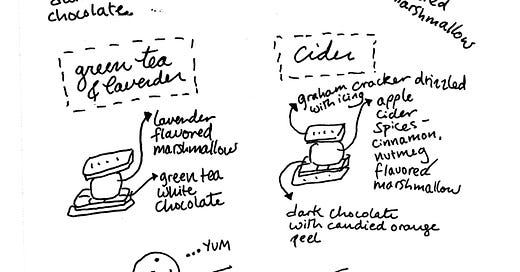 chocolate...
marshmallow
green tea
& lavender
lavender
flavored
marshmallow
green tea
white
chocolate
cider
graham cracker drizzled
with icing
apple
cider
spices -
cinnamon,
nutmeg
flavored
marshmallow
dark chocolate
with candied orange
peel
...YUM